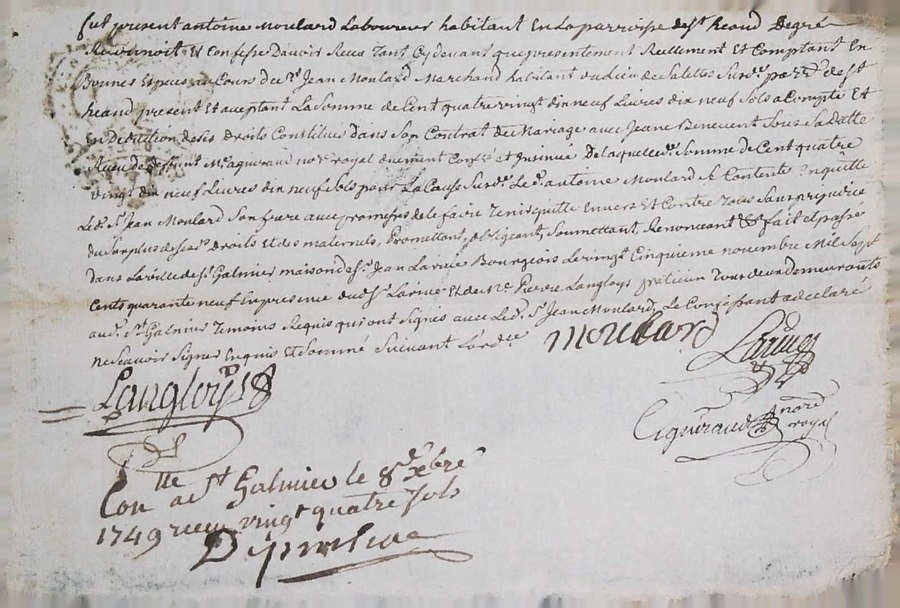 fut present antoine Moulard Laboureur habitant En La parroisse de st heand De gré
Reconnoit Et Confesse D'avoir Receu Tant Cy devant que presentement Reellement Et Comptant En
Bonnes Especes au Cours de sr Jean Moulard Marchand habitant du Lieu de Salettes Susde parre de st
heand present Et aceptant La Somme de Cent quatre vingt dix neuf Livres dix neuf Sols a Compte Et
En Deduction de ses Droits Constitues dans Son Contrat de Mariage avec Jeane Benevent Sous sa Datte
Receu de deffunt Me aguiraud nore royal duement Conlé et insinué De laquelle de Somme de Cent quatre
vingt dix neuf Livres dix neuf Sols pour La Cause Susde Le d. antoine Moulard Se Contente En quitte
Le d. Sr Jean Moulard Son frere avec promesse de le faire Tenir quitte Envers Et Contre Tous Sans prejudice
du Surplus de ses droits Et des maternels, Promettant, obligeant, Soumettant, Renonceant &a fait et passé
dans La ville de st Galmier maison de sr Jean Larüe Bourgeois Le vingt Cinquieme novembre Mil Sept
Cents quarante neuf En presence dud. Sr Larüe Et de Me Pierre Langloys praticien Tous deux demeurants
aud. st Galmier Temoins Requis qui ont Signés avec Led. Sr Jean Moulard, Le Confessant a declaré
ne Sçavoir Signer Enquis Et Sommé Suivant L'ordce
Moulard
Larüe
Langloys
aguiraud nore royal
Conlle a St Galmier le 8e Xbre
1749 receu vingt quatre Sols